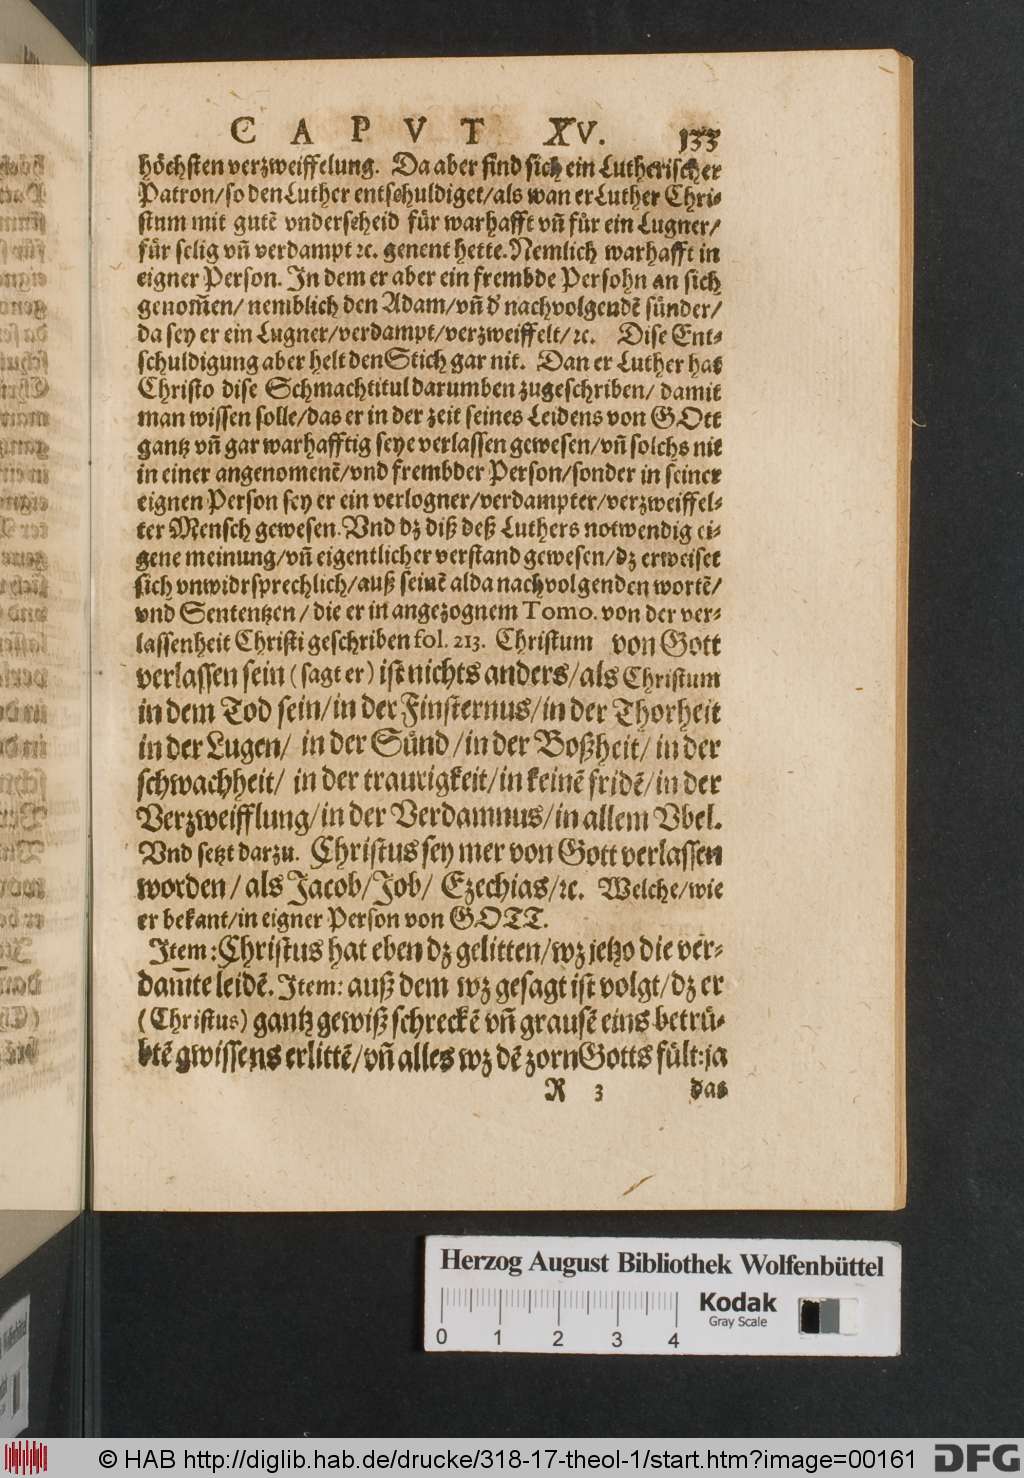 CAPVT XV. 133
höchsten verzweiffelung. Da aber sind sich ein Lutherischer
Patron/so den Luther entschuldiget/als wan er Luther Chri-
stum mit gutẽ vnderscheid für warhafft vñ für ein Lugner/
für selig vñ verdampt ꝛc. genent hette. Nemlich warhafft in
eigner Person. In dem er aber ein frembde Persohn an sich
genom̃en/ nemblich den Adam/vñ d' nachvolgendẽ sünder/
da sey er ein Lugner/verdampt/verzweiffelt/ꝛc. Dise Ent-
schuldigung aber helt den Stich gar nit. Dan er Luther hat
Christo dise Schmachtitul darumben zugeschriben/ damit
man wissen solle/das er in der zeit seines Leidens von GOtt
gantz vñ gar warhafftig seye verlassen gewesen/vñ solchs nit
in einer angenomenẽ/vnd frembder Person/sonder in seiner
eignen Person sey er ein verlogner/verdampter/verzweiffel-
ter Mensch gewesen. Vnd dz diß deß Luthers notwendig ei-
gene meinung/vñ eigentlicher verstand gewesen/dz erweiset
sich vnwidrsprechlich/auß seinẽ alda nachvolgenden wortẽ/
vnd Sententzen/ die er in angezognem Tomo. von der ver-
lassenheit Christi geschriben fol. 213. Christum von Gott
verlassen sein (sagt er) ist nichts anders/als Christum
in dem Tod sein/in der Finsternus/in der Thorheit
in der Lugen/ in der Sünd/in der Boßheit/ in der
schwachheit/ in der traurigkeit/in keinẽ fridẽ/in der
Verzweifflung/in der Verdamnus/in allem Vbel.
Vnd setzt darzu. Christus sey mer von Gott verlassen
worden/ als Jacob/Job/ Ezechias/ꝛc. Welche/wie
er bekant/in eigner Person von GOTT.
Item: Christus hat eben dz gelitten/wz jetzo die ver-
dam̃te leidẽ. Item: auß dem wz gesagt ist volgt/dz er
(Christus) gantz gewiß schreckẽ vñ grausẽ eins betrü-
btẽ gwissens erlittẽ/vñ alles wz dẽ zorn Gotts fült: ja
R 3 das
Herzog August Bibliothek Wolfenbüttel
Kodak
Gray Scale
0 1 2 3 4
© HAB http://diglib.hab.de/drucke/318-17-theol-1/start.htm?image=00161
DFG